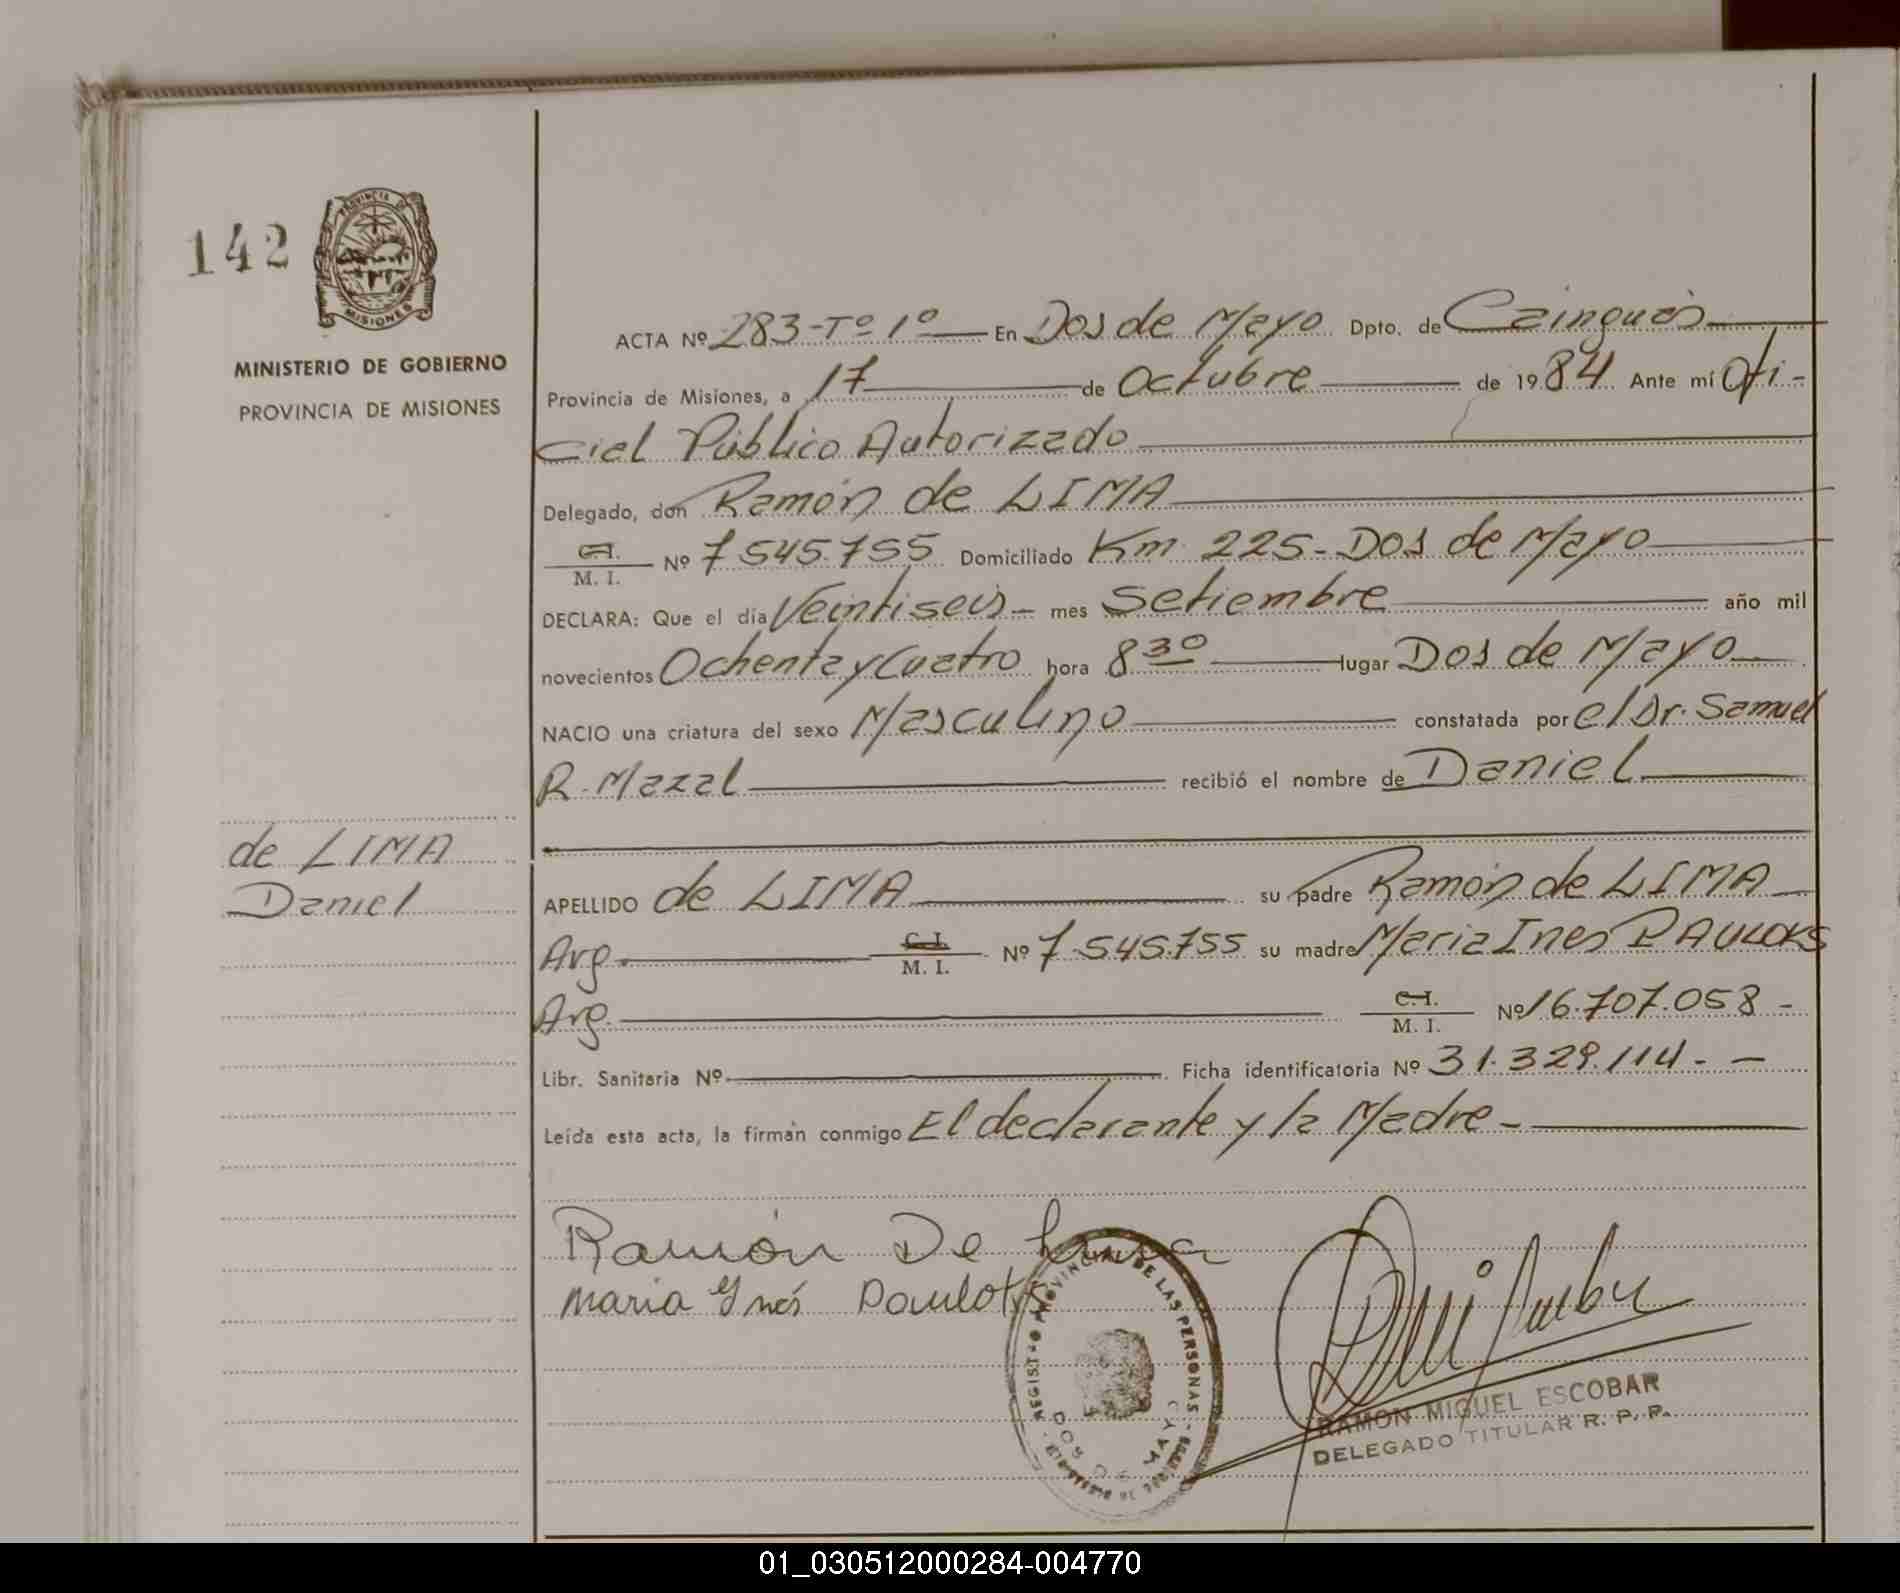 142
PROVINCIA DE
MISIONES
MINISTERIO DE GOBIERNO
PROVINCIA DE MISIONES
ACTA Nº 283-Tº 1º En Dos de Mayo Dpto. de Cainguás
Provincia de Misiones, a 17 de Octubre de 1984 Ante mí Ofi-
cial Público Autorizado
Delegado, don Ramón de LIMA
C.I.
M. I. Nº 7.545.755 Domiciliado Km. 225 - Dos de Mayo
DECLARA: Que el día Veintiseis - mes Setiembre año mil
novecientos Ochenta y Cuatro hora 8 30 lugar Dos de Mayo
NACIO una criatura del sexo Masculino constatada por el Dr. Samuel
R. Mazal recibió el nombre de Daniel
de LIMA
Daniel
APELLIDO de LIMA su padre Ramón de LIMA
Arg. C. I.
M. I. Nº 7.545.755 su madre Maria Ines PAULOKS
Arg. C. I.
M. I. Nº 16.707.058 -
Libr. Sanitaria Nº Ficha identificatoria Nº 31.329.114 - -
Leída esta acta, la firman conmigo El declarante y la Madre -
Ramón De Lima
Maria Ynés
REGISTRO PROVINCIAL DE LAS PERSONAS
DOS DE MAYO
RAMON MIGUEL ESCOBAR
DELEGADO TITULAR R. P. P.
01_030512000284-004770